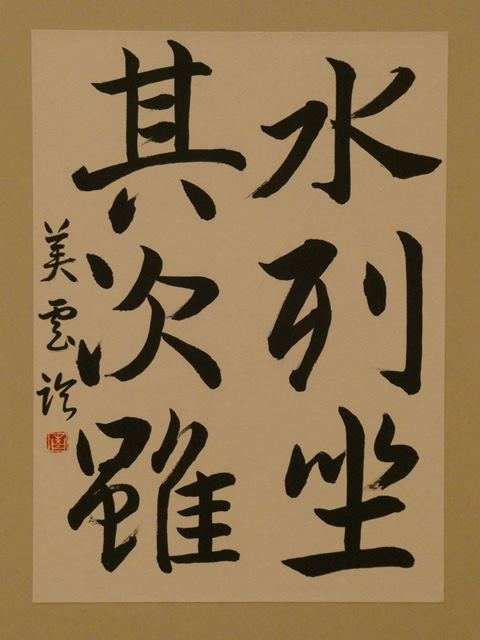 水列坐
其次雖
美雲